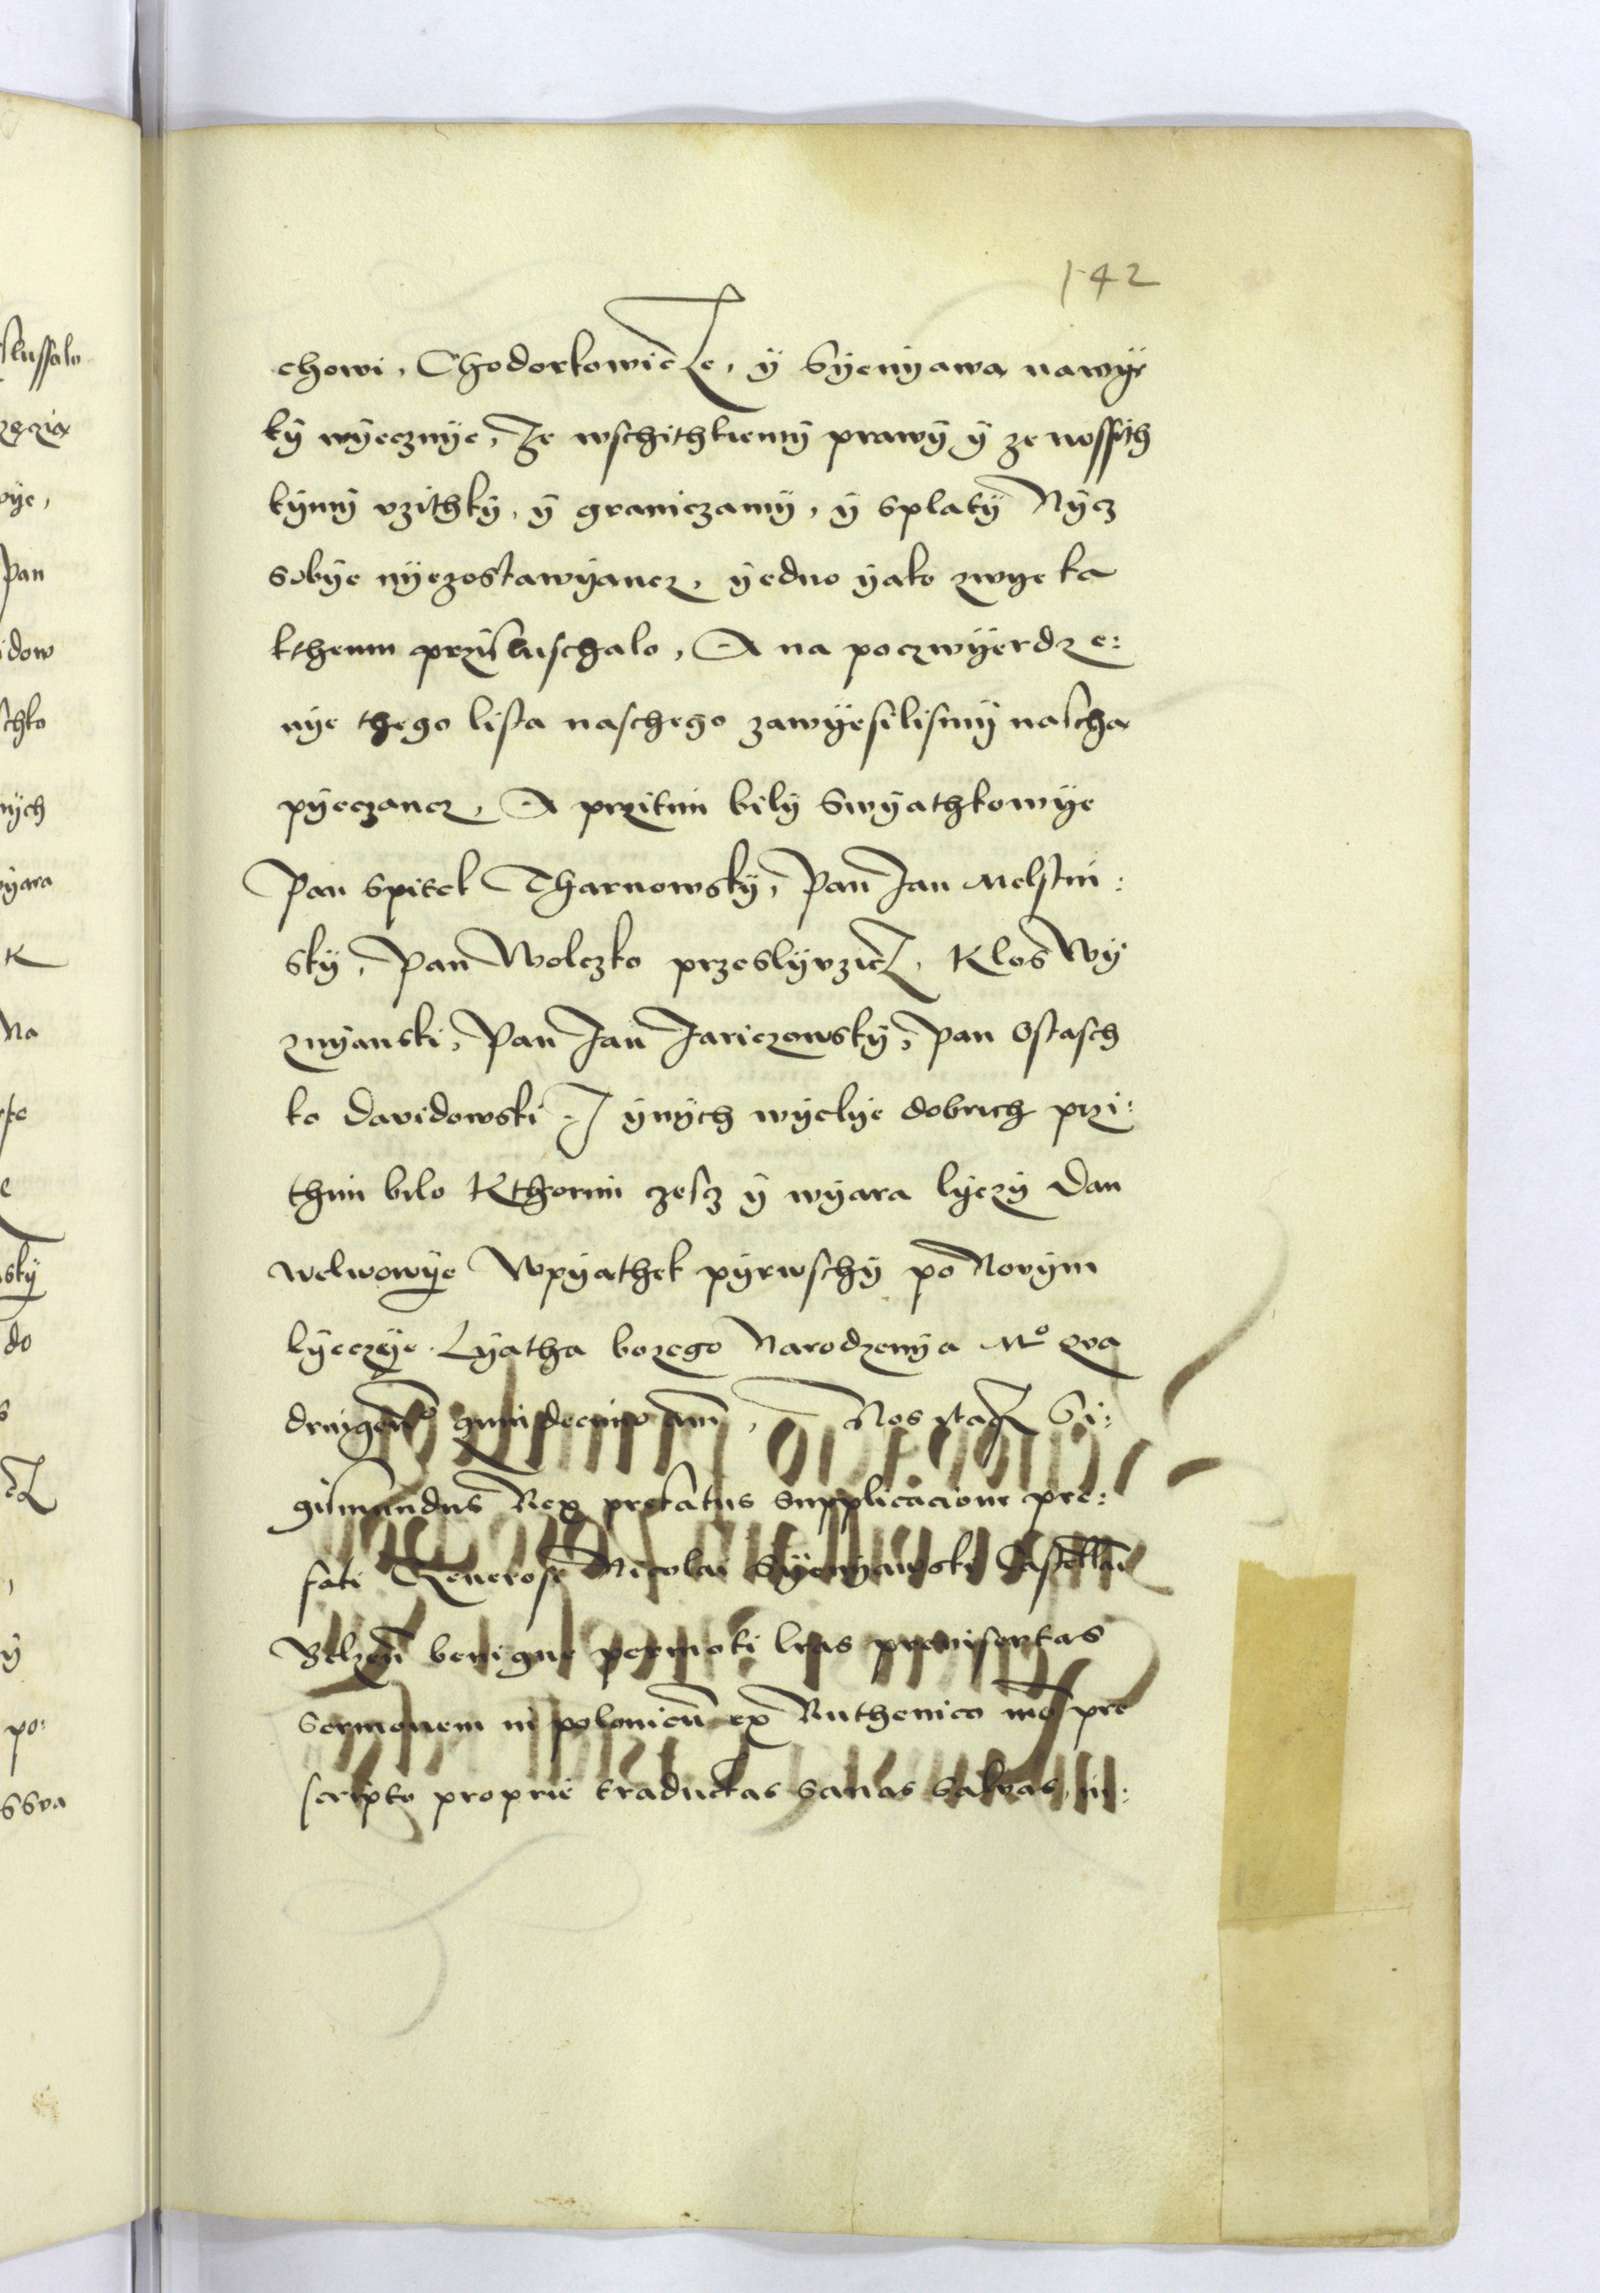 142
chowi, Chodorkowicze, ÿ Syenyawa nawye
kÿ wÿecznÿe, Ze wschithkiemÿ prawÿ ÿ ze wssÿth
kÿmÿ vzithkÿ, ÿ graniczamÿ, ÿ splatÿ Nÿcz
sobÿe nÿezostawÿancz, ÿedno ÿako zwyeka
kthemu prÿsluschalo, A na poczwÿerdze:
nÿe thego lista naschego zawÿesilismÿ nascha
pÿeczancz, A przitim bilÿ Swÿathkowÿe
Pan Spitek Tharnowskÿ, Pan Jan Melstin:
skÿ, Pan Wolczko przeslÿvzicz, Klos Wÿ
znÿanski, Pan Jan Jariczowskÿ, Pan Ostasch
ko Davidowski, J ÿnÿch wÿelÿe dobrich przi:
thim bilo Kthorim czescz ÿ wÿara lÿezÿ Dan
welwowÿe Wpÿathek pÿrwschÿ po Novÿm
lÿeczÿe. Lÿatha bozego Narodzenÿa Mº Qua
dringenº quindecimo ann, Nos itaq Si:
gismundus Rex prefatus supplicacione pre:
fati Generosi Nicolai Syenyawski Castellani
Belzeñ benigne permoti lras preinsertas
sermonem in polonicũ ex Ruthenico mõ pre
scripto proprie traductas sanas salvas, in: